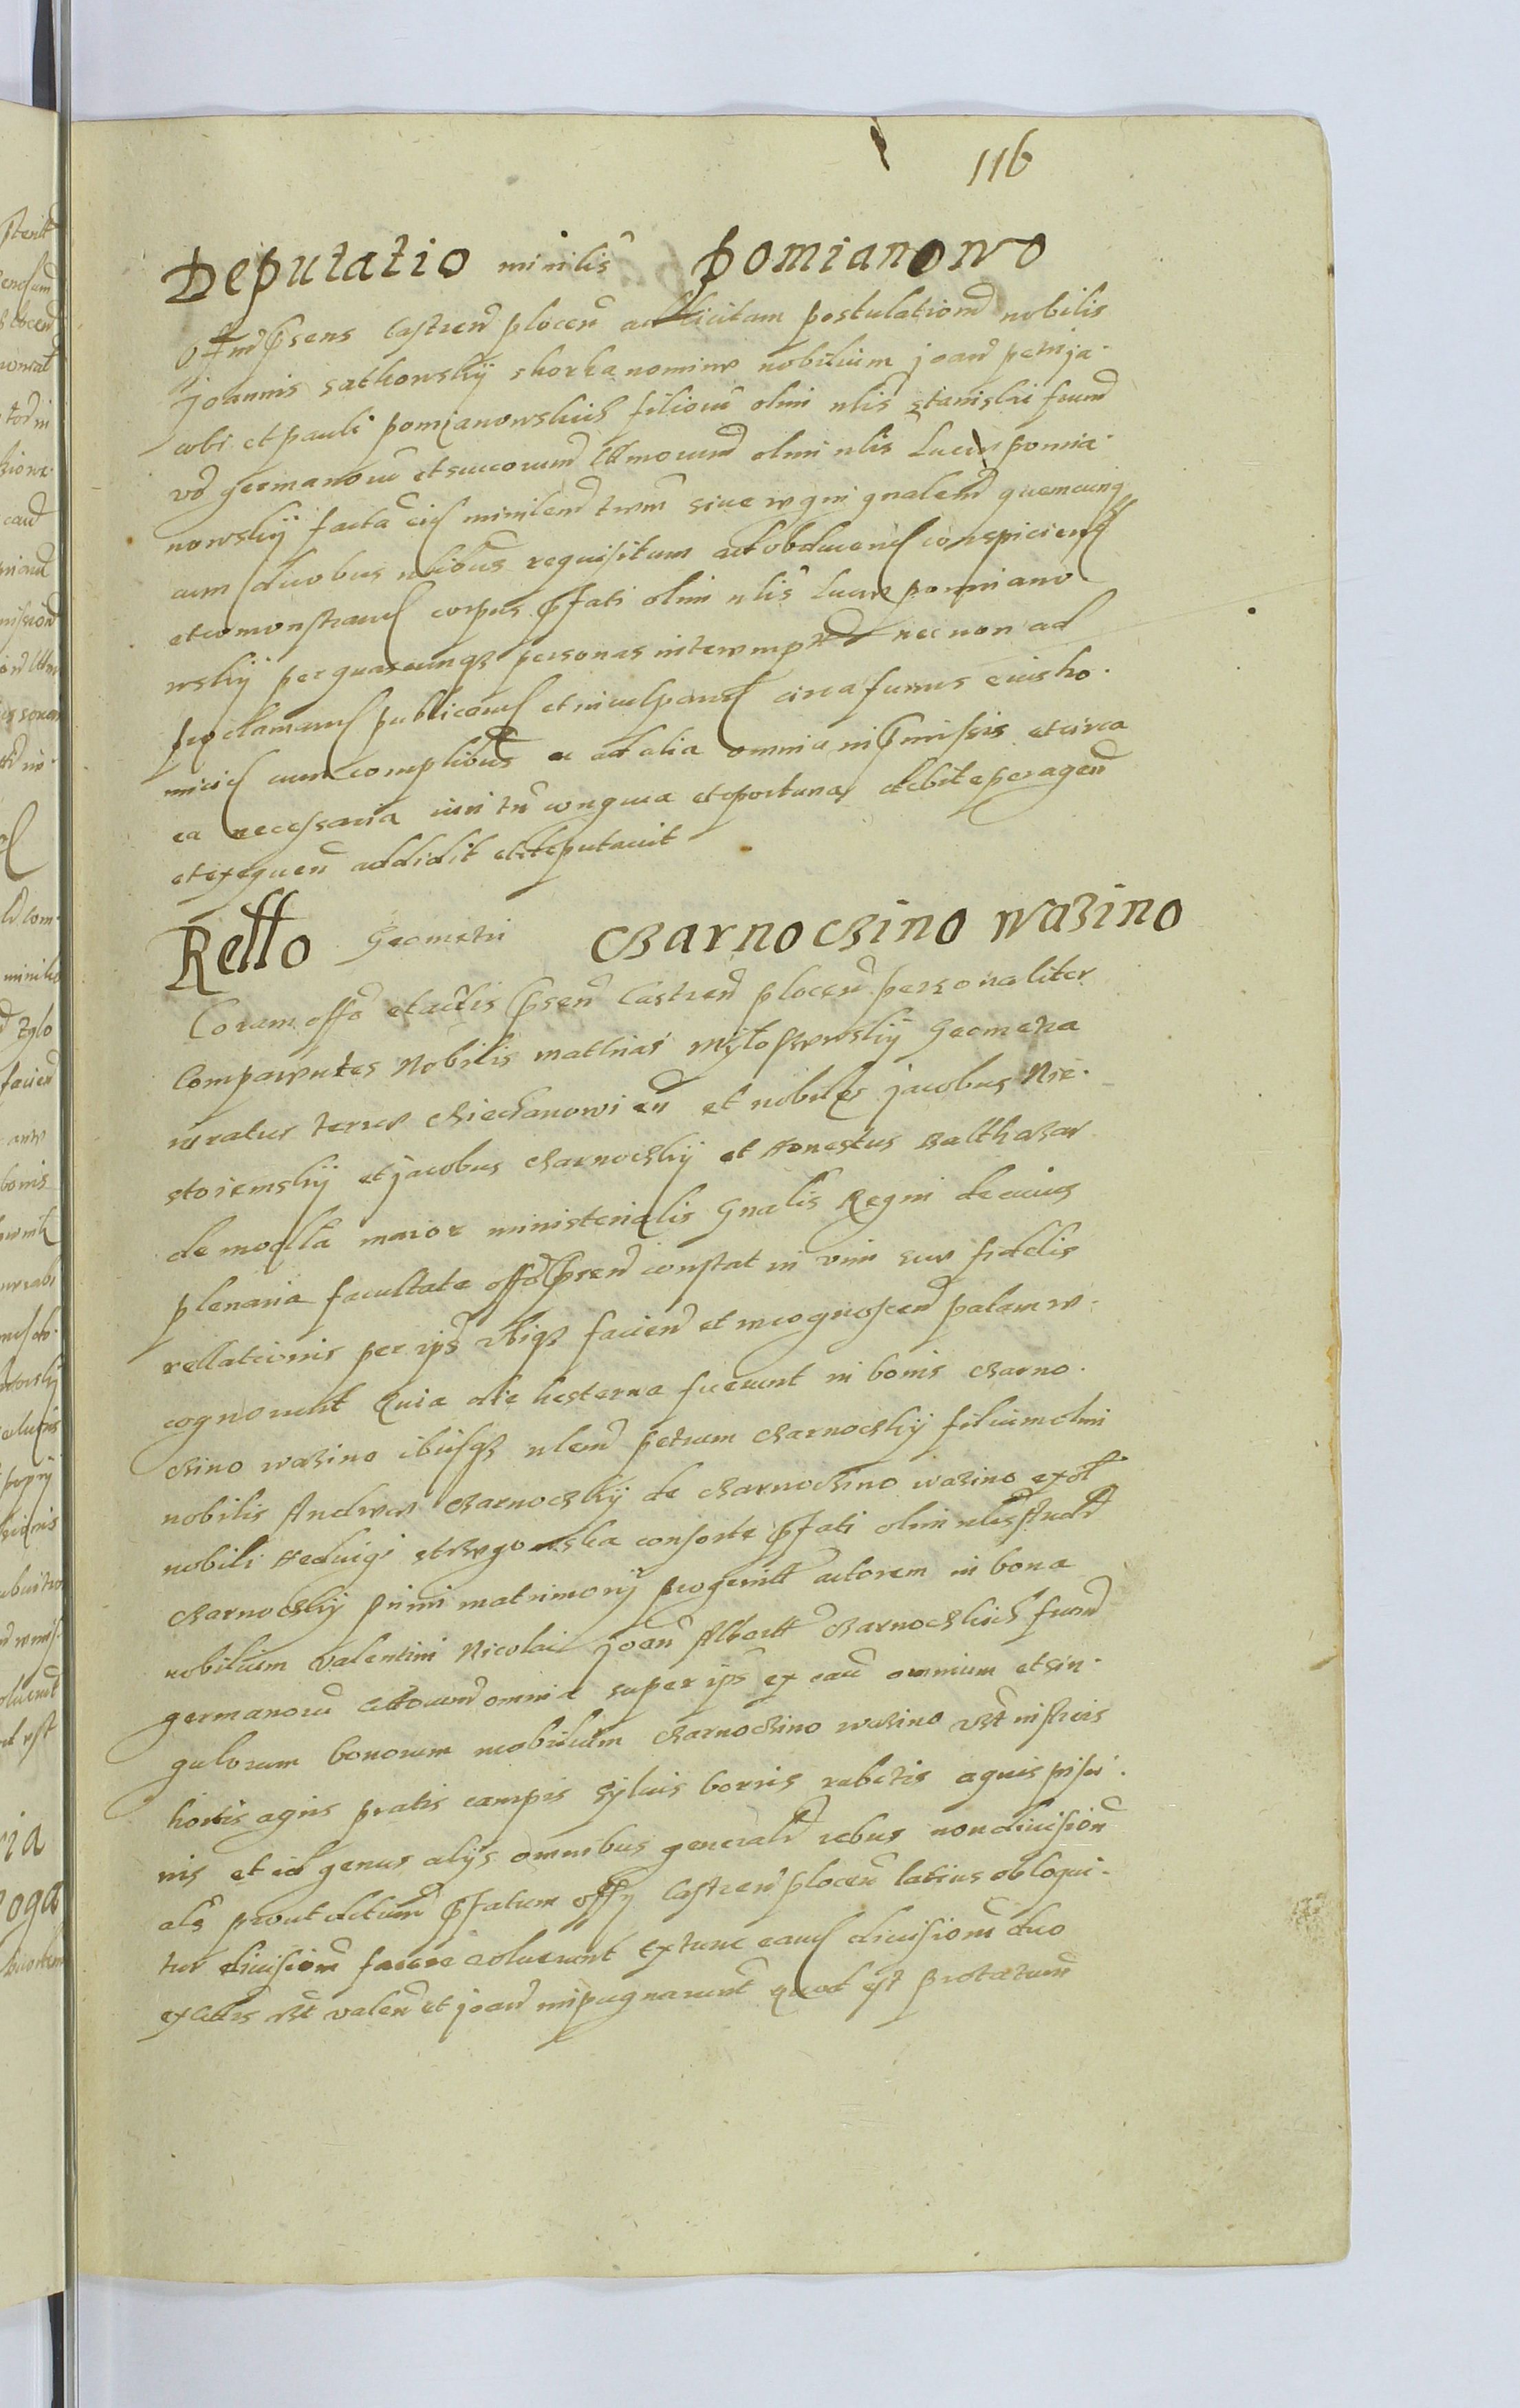 116
Deputatio minilis pomianowo
Offm psens Castren plocen ad licitam postulationem nobilis
Joannis sathowskij skorka nomine nobilium joan petri ja-
cobi et pauli pomianowskich filiorum olim nlis stanislai frum
vo germanorum et successorum olim nlis Lucae pomia-
nowskij facta eis minilem trum siue regni gnalem quemcunq
cum duobus nlibus requisitum ad obducend conspiciend
et comonstrand corpus pfati olim nlis Lucae pomiano
wskij per quascunqz personas interempt nec non ad
proclamand publicand et inculpand circa funus eius ho-
micid cum complicibus ac ad alia omnia in pmissis et circa
ea necessaria iuri tn congrua et oportuna debite peragen
et exequen addidit et deputauit
Retto Geometri Czarnoczino wazino
Coram offo et actis psen Castren plocen personaliter
Comparentes Nobilis mathias Geometra
iuratus terrae Cziechanowien et nobiles jacobus Nie-
stoiemskij et jacobus Czarnoczkij et Honestus Balthazar
de moglta maior ministerialis Gnalis Regni de cuius
plenaria facultate offo psen constat in vim suae fidelis
rellationis per ips vbiqz facien et recognoscen palam re-
cognorunt Quia die hesterna fuerunt in bonis Czarno-
czino wazino ibusqz nlem petrum Czarnoczkij filium olim
nobilis Andreae Czarnoczkij de Czarnoczino wazino ex olim
nobili Heduigi strzegowska consorte pfati olim nlis Andr
Czarnoczkij primi matrimonij progenitt actorem in bona
nobilium Valentini Nicolai joan Albertt Czarnoczkich frum
germanorum omnia super ips ex cau omnium et sin-
gulorum bonorum mobilium Czarnoczino wazino vst in
hortis agris pratis campis syluis borris rubetis aquis pisci-
nis et id genus alijs omnibus generalr rebus non diuision
als prout pfatum offij Castren plocen latius obloqui-
tur diuisiom facere voluerunt Ex tunc eand diuisiom duo
ex vst valen et joan impugnarunt quod est protatum